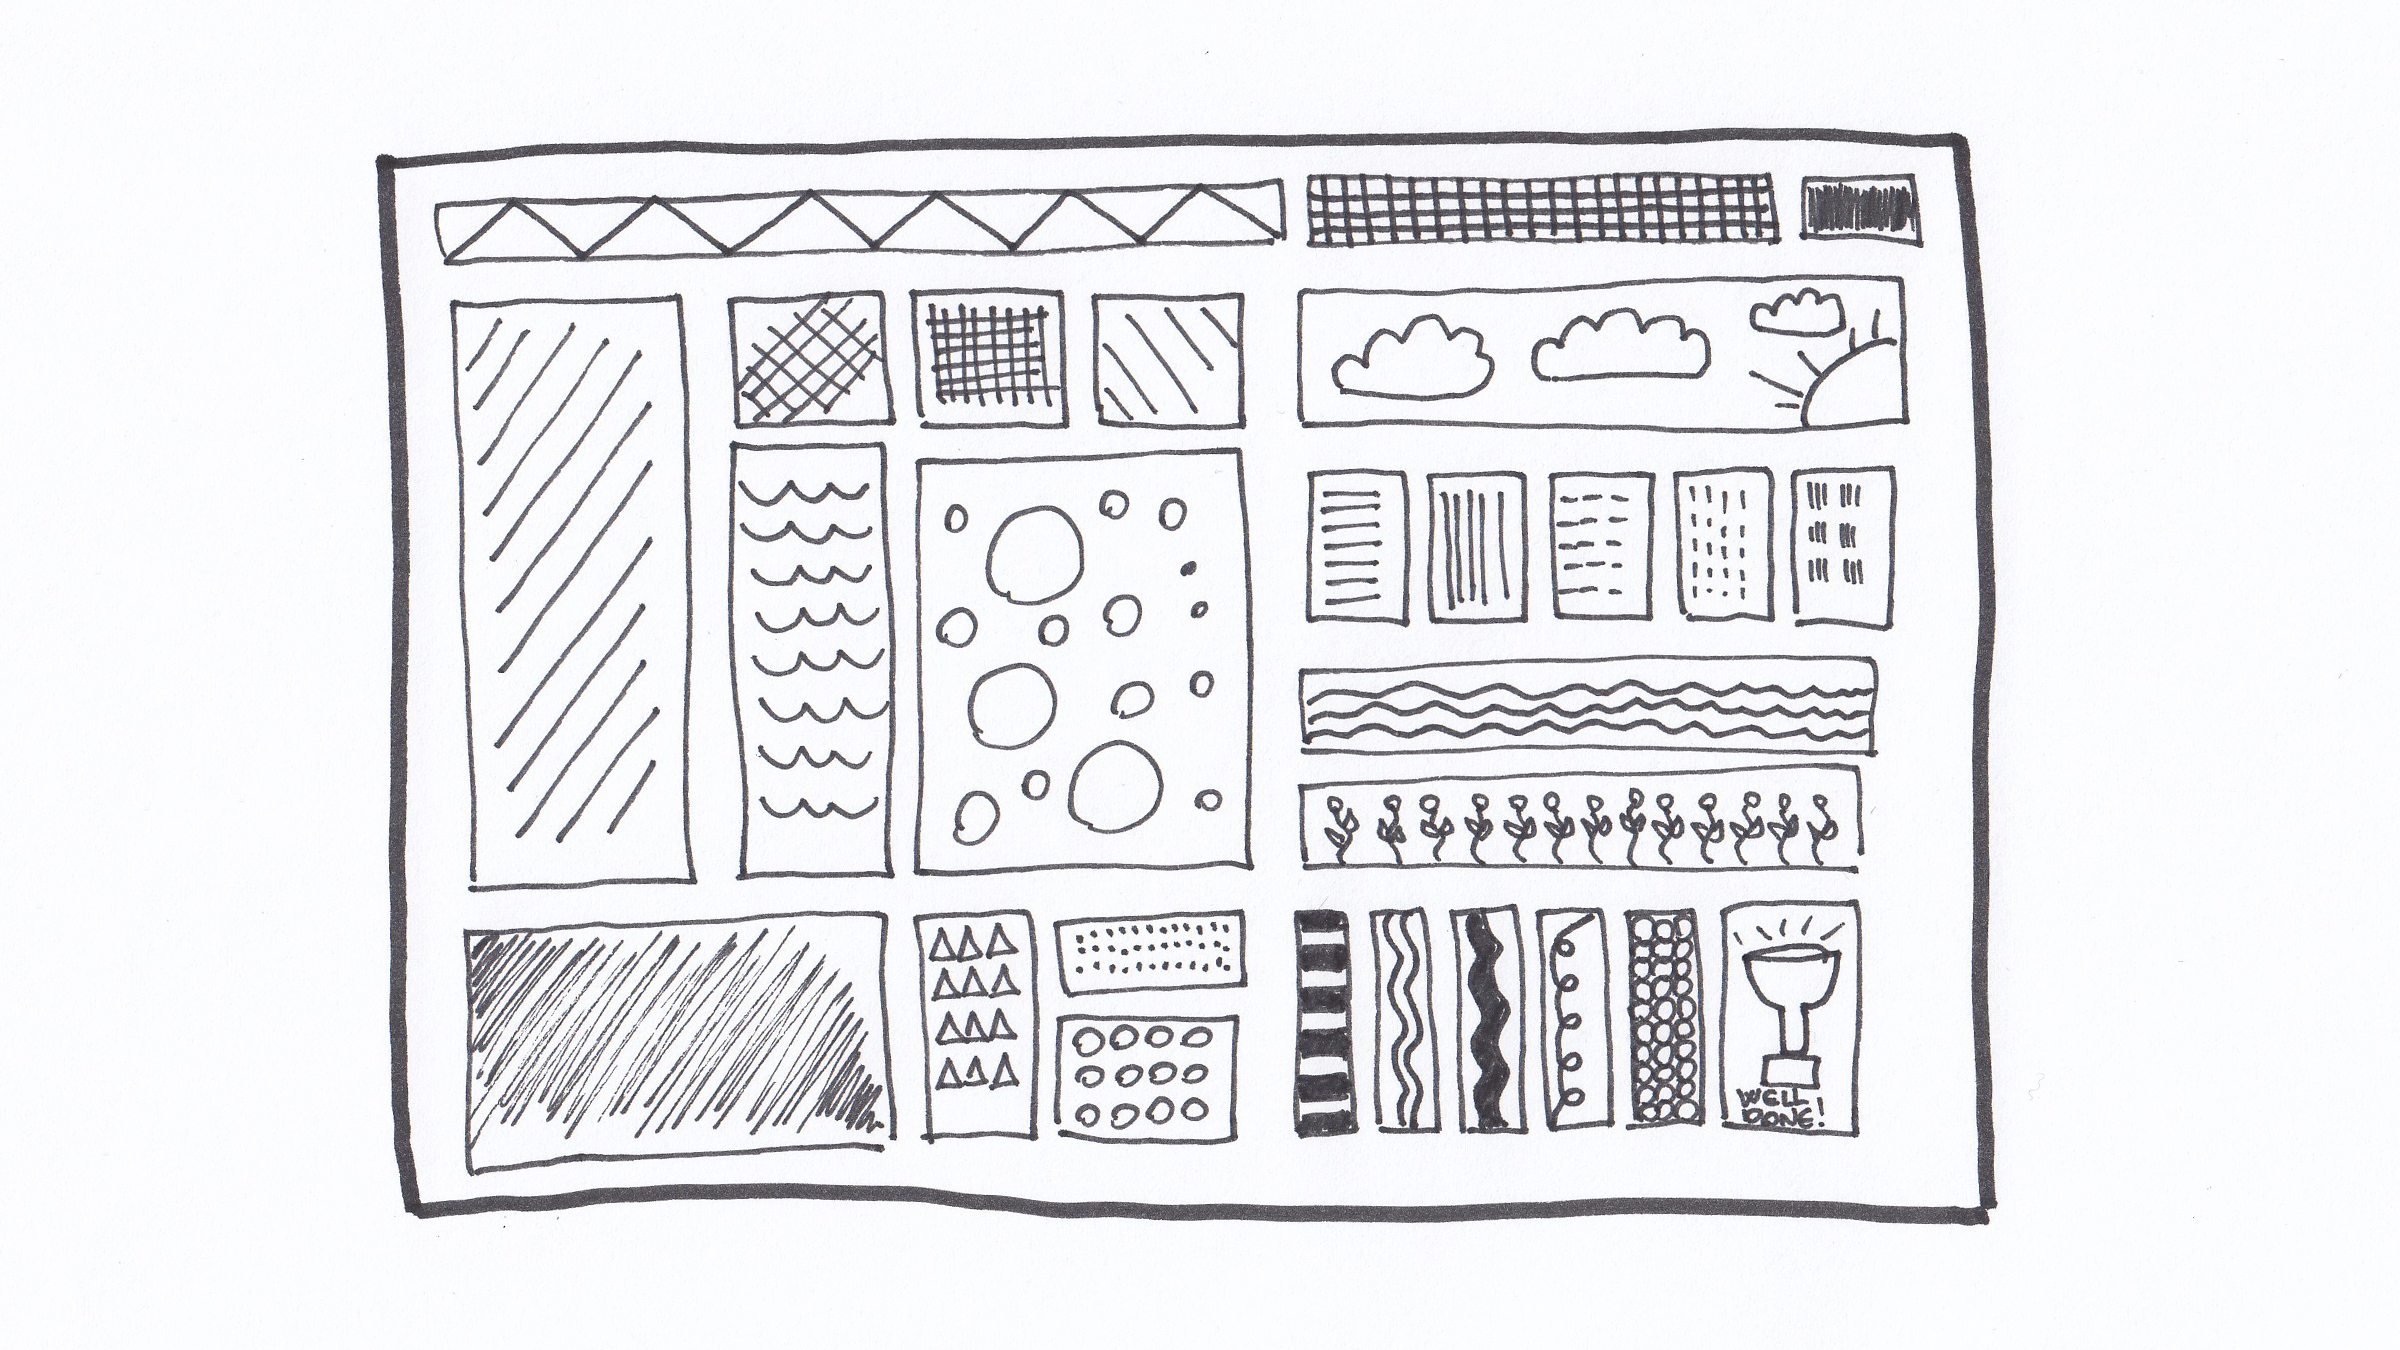 WELL
DONE!